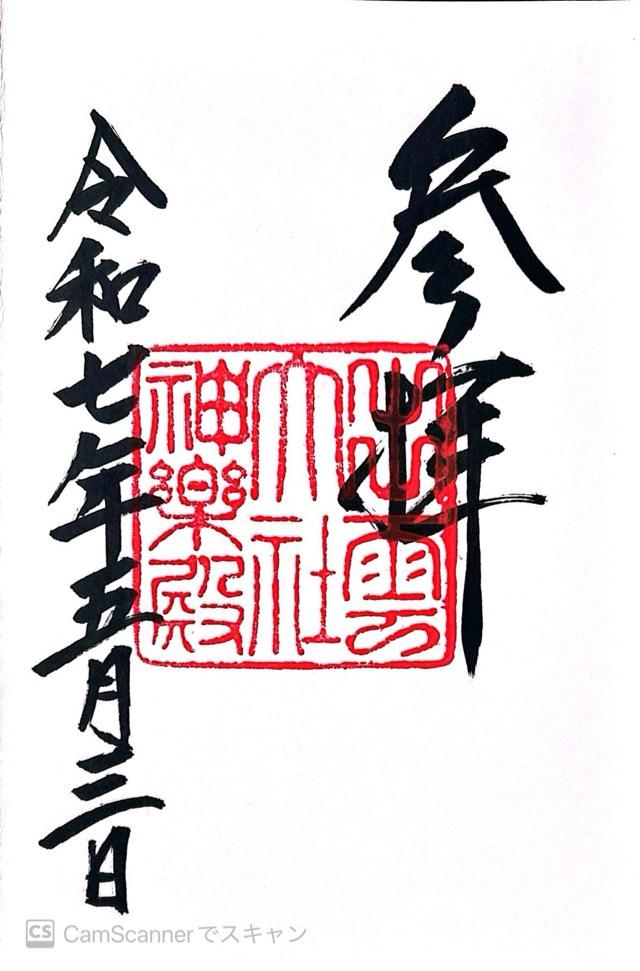 参拝
出雲
大社
神楽殿
令和七年五月三日
CS CamScannerでスキャン